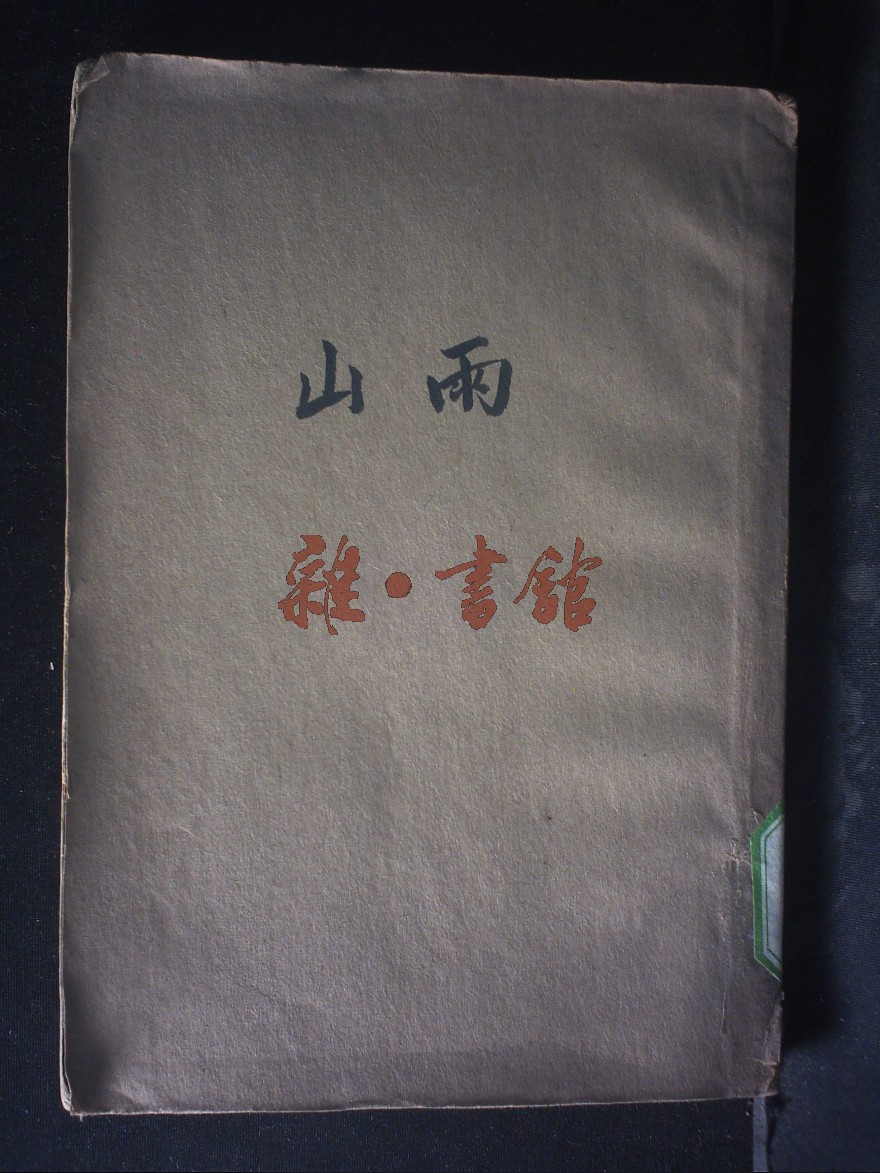 山雨
雜·書館